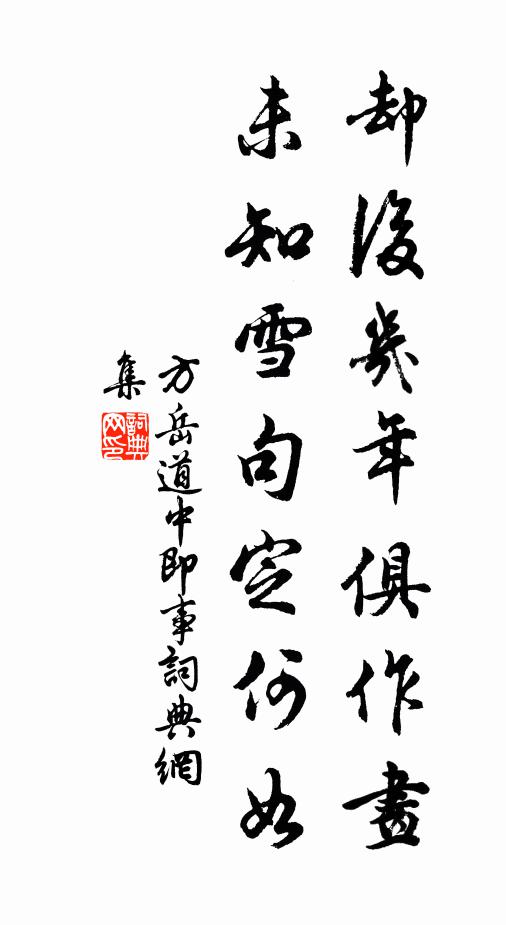 却後幾年俱作畫
未知雪句定何如
方岳道中即事詞典網
集
詞典網印